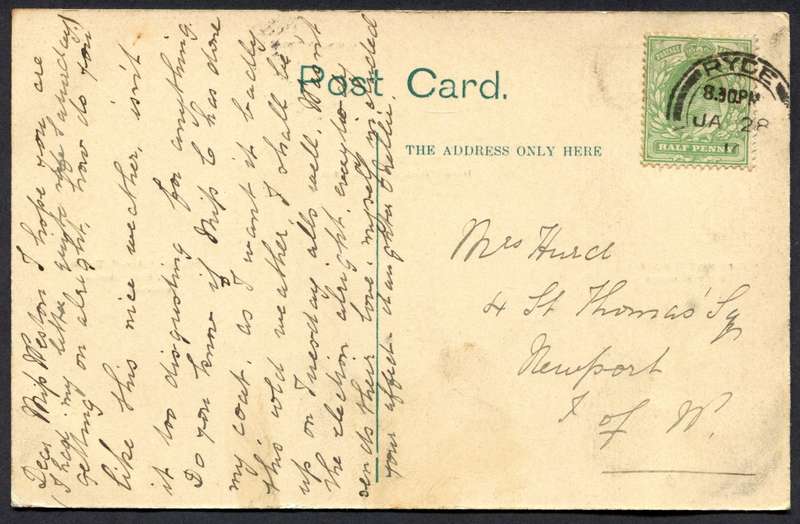 Post Card.
THE ADDRESS ONLY HERE
RYDE
8.30PM
JA 28
HALF PENNY
Mrs Hurd
4 St Thomas' Sq
Newport
I of W.
Dear Miss Weston I hope you are
getting on alright, how do you
like this nice weather, isn't
it too disgusting for anything.
Do you know if Miss C has done
my coat, as I want it badly
this cold weather, I shall be
up on Tuesday alls well.
the election alright, everyone
sends their love, myself included
your affect- daughter Nellie.
(I hear my letter Saturday)